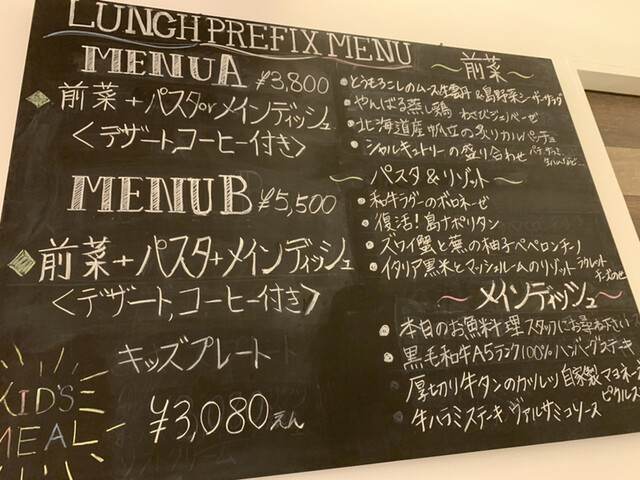 LUNCH PREFIX MENU
MENU A ¥3,800
前菜+パスタorメインディッシュ
<デザート,コーヒー付き>
MENU B ¥5,500
前菜+パスタ+メインディッシュ
<デザート,コーヒー付き>
キッズプレート
¥3,080えん
KID'S
MEAL
〜前菜〜
とうもろこしのムース生雲丹&島野菜シーザーサラダ
やんばる蒸し鶏 わさびジェノベーゼ
北海道産帆立の炙りカルパッチョ
シャルキュトリーの盛り合わせ
〜パスタ&リゾット〜
和牛ラグーのボロネーゼ
復活!島ナポリタン
ズワイ蟹と葉の柚子ペペロンチーノ
イタリア黒米とマッシュルームのリゾット ラクレット
チーズのせ
〜メインディッシュ〜
本日のお魚料理 スタッフにお尋ね下さい
黒毛和牛A5ランク100%ハンバーグステキ
厚切り牛タンのカツレツ 自家製マヨネーズ
ピクルス
牛ハラミステキ ヴァルサミコソース